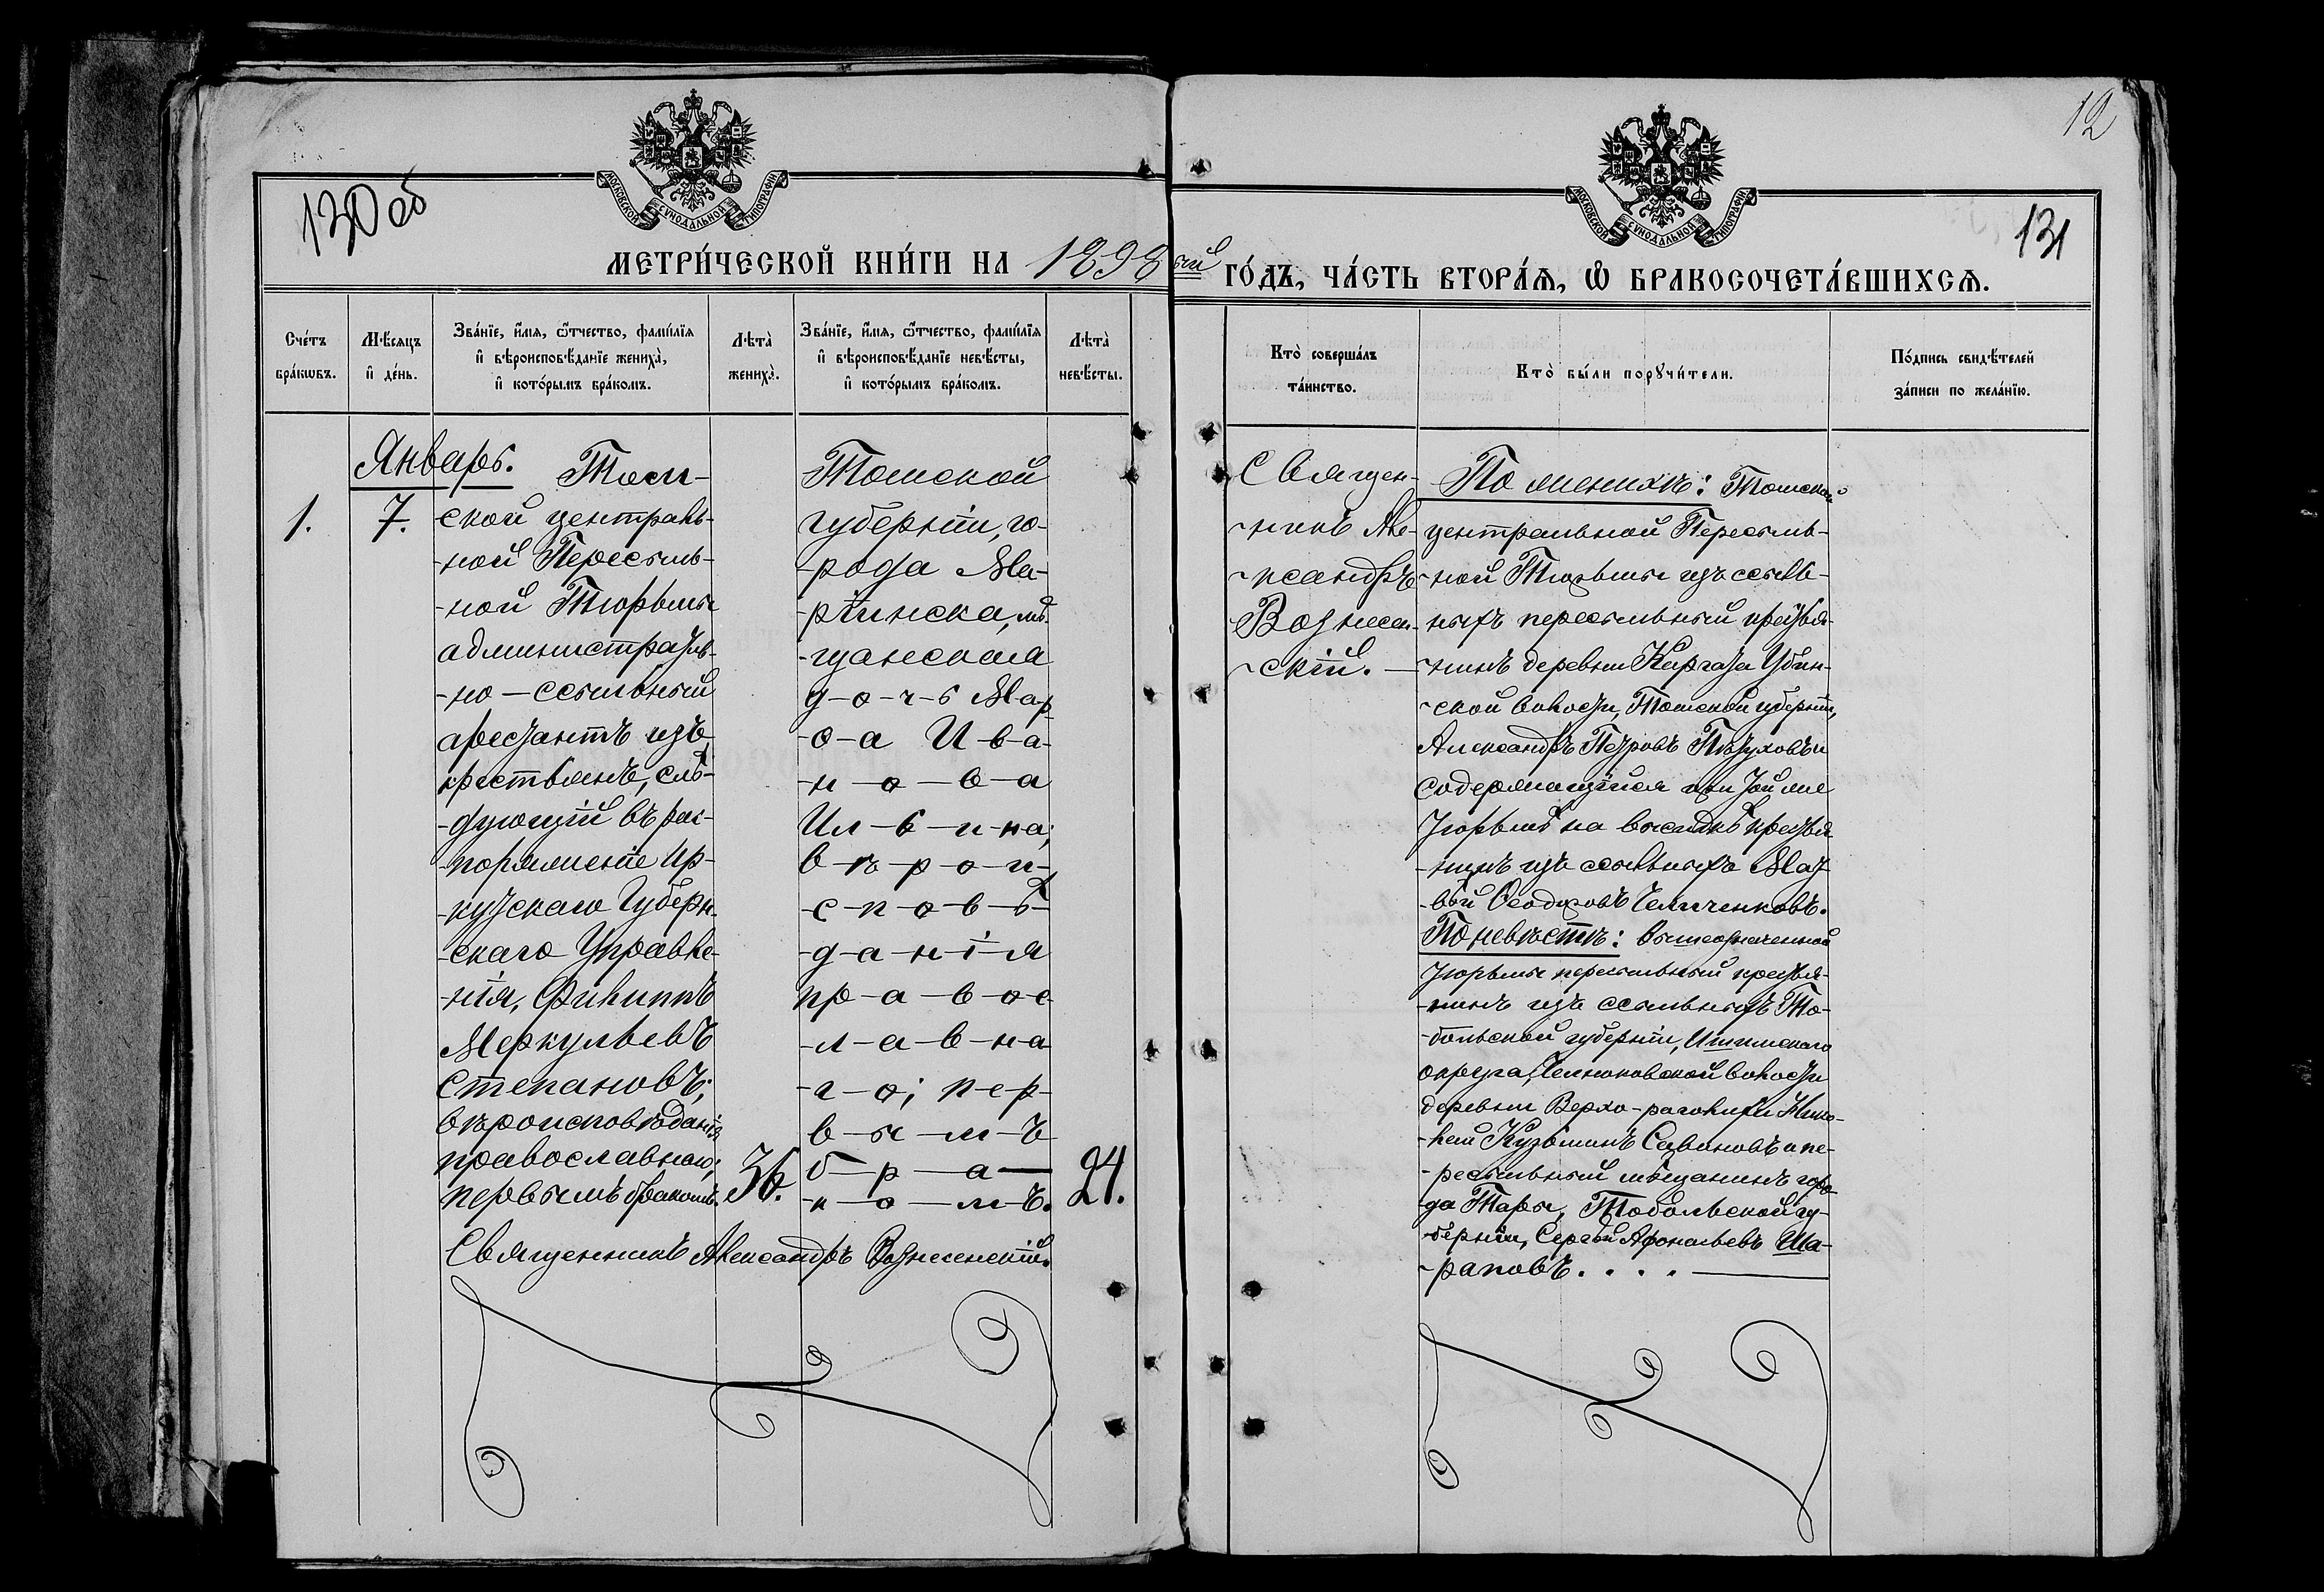 12
МОСКОВСКОЙ СѴНОДАЛЬНОЙ ТИПОГРАФІИ
МОСКОВСКОЙ СѴНОДАЛЬНОЙ ТИПОГРАФІИ
130 об
131
МЕТРИ́ЧЕСКОЙ КНИ́ГИ НА 1898ый ГО́ДЪ, ЧА́СТЬ ВТОРА́Ѧ, Ѡ҆ БРАКОСОЧЕТА́ВШИХСѦ.
Сче́тъ
бра́кѡвъ.
Мѣ́сяцъ
и҆ де́нь.
Зва́нїе, и҆́мя, ѻ҆́тчество, фами́лїя
и҆ вѣроисповѣ́данїе жениха̀,
и҆ кото́рымъ бра́комъ.
Лѣта̀
жениха̀.
Зва́нїе, и҆́мя, ѻ҆́тчество, фами́лїя
и҆ вѣроисповѣ́данїе невѣ́сты,
и҆ кото́рымъ бра́комъ.
Лѣта̀
невѣ́сты.
Кто̀ соверша́лъ
та́инство.
Кто̀ бы́ли порꙋчи́тели.
По́дпись свидѣ́телей
за́писи по жела́нїю.
Январь.
1.
7.
Том-
ской централь-
-ной Пересыль-
-ной Тюрьмы
административ-
-но-ссыльный
арестантъ изъ
крестьянъ, слѣ-
-дующій въ рас-
-поряженіе Ир-
-кутскаго Губерн-
-скаго Управле-
-нія, Филиппъ
Меркульевъ
Степановъ;
вѣроисповѣданія
православнаго;
первымъ бракомъ.
36.
Томской
губерніи, го-
-рода Ма-
-ріинска, мѣ-
-щанская
д-о-ч-ь Мар-
-ѳ-а И-в-а-
-н-о-в-а
Ил-ь-и-на;
в-ѣ-р-о-и-
-с-п-о-в-ѣ-
-д-а-н-і-я
пр-а-в-о-с-
-л-а-в-на-
-г-о; п-е-р-
в-ы-м-ъ
б-р-а-
-к-о-м-ъ.
24.
Священникъ Александръ Вознесенскій.
Священ-
-никъ Але-
-ксандръ
Вознесен-
-скій.
По женихѣ: Томской
центральной Пересыль-
-ной Тюрьмы изъ ссыль-
ныхъ пересыльный крестья-
-нинъ деревни Каргата Убин-
-ской волости, Томской губерніи,
Александръ Петровъ Пѣтуховъ и
содержащійся при той же
тюрьмѣ на высидкѣ крестья-
-нинъ изъ ссыльныхъ Мат-
-вѣй Ѳедоровъ
По невѣстѣ: вышеозначенной
тюрьмы пересыльный крестья-
-нинъ изъ ссыльныхъ То-
-больской губерніи, Ишимскаго
округа, волости
деревни Верхо- Нико-
-лай Кузьминъ и пе-
-ресыльный мѣщанинъ горо-
да Тары, Тобольской гу-
-берніи, Сергѣй Афонасьевъ Ша-
-раповъ. . . .